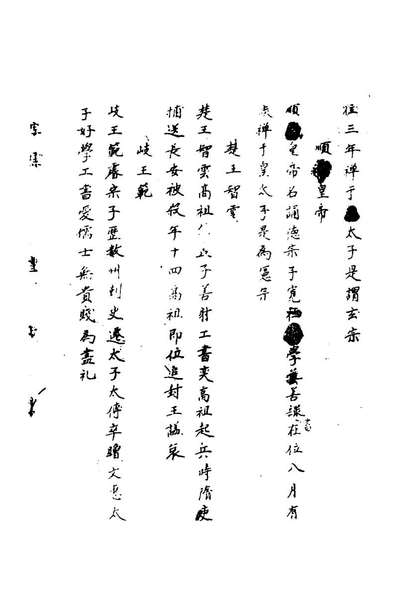 位三年禅于太子是謂玄宗
順皇帝
順皇帝名誦德宗子寬學藝善隸書在位八月有
疾禅于皇太子是為憲宗
楚王智雲
楚王智雲高祖子善射工書奕高祖起兵時隋吏
捕送長安被殺年十四高祖即位追封王謚哀
岐王範
岐王範睿宗子歷数州刺史遷太子太傅卒贈文惠太
子好學工書愛儒士無貴賤為盡礼